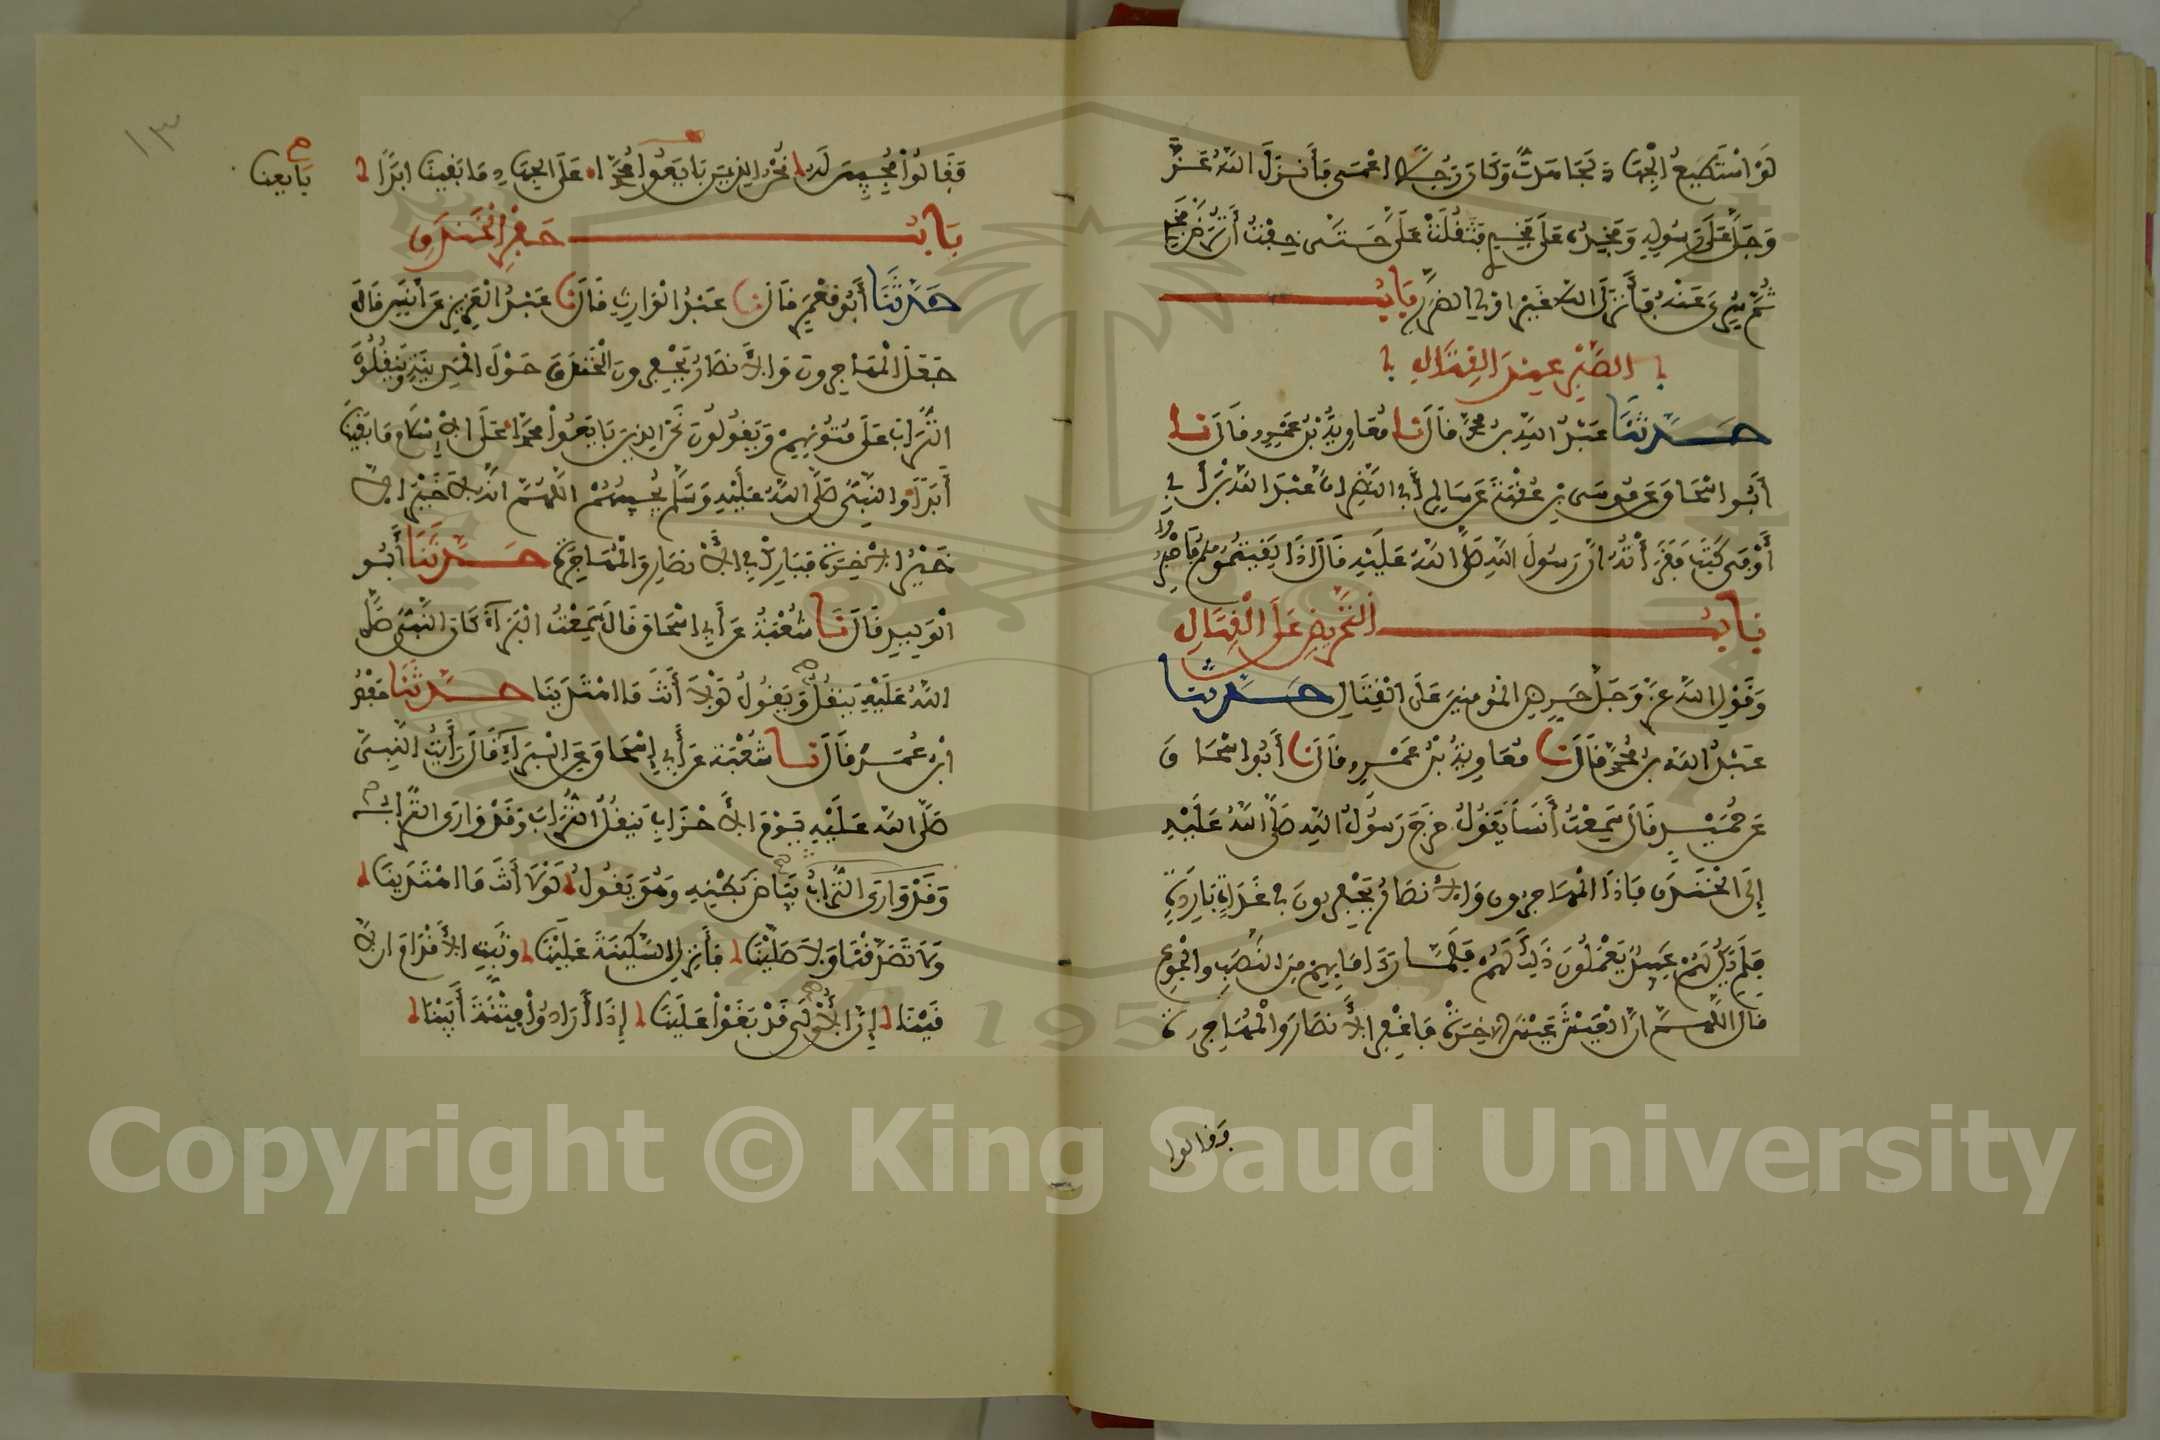 لَوْ اسْتَطِيعُ الْجِهَادَ لَجَاهَدْتُ وَكَانَ رَجُلًا اعْمَى فَأَنزَلَ اللهُ عَزَّ
وَجَلَّ عَلَى رَسُولِهِ وَفَخِذُهُ عَلَى فَخِذِي فَثَقُلَتْ عَلَيَّ حَتَّى خِفْتُ أَن تُرَضَّ فَخِذِي
ثُمَّ سُرِّيَ عَنْهُ فَأَنزَلَ اللهُ غَيْرَ اولِي الضَّرَرِ بَابُ
الصَّبْرِ عِندَ القِتَالِ
حَدَّثَنَا عَبْدُ اللهِ بنُ مُحَمَّدٍ قَالَ نَا مُعَاوِيَةُ بْنُ عَمْرٍو قَالَ نَا
أَبُو اسْحَاقَ عَن مُوسَى بْنِ عُقْبَةَ عَن سَالِمٍ أَبِي النَّضْرِ انَّ عَبْدَ اللهِ بْنَ أَبِي
أَوْفَى كَتَبَ فَقَرَأْتُهُ انَّ رَسُولَ اللهِ صَلَّى اللهُ عَلَيْهِ قَالَ اذَا لَقِيتُمُوهُمْ فَاصْبِرُوا
بَابُ التَّحْرِيضِ عَلَى الْقِتَالِ
وَقَوْلِ اللهِ عَزَّ وَجَلَّ حَرِّضِ الْمُؤْمِنِينَ عَلَى الْقِتَالِ حَدَّثَنَا
عَبْدُ اللهِ بنُ مُحَمَّدٍ قَالَ نَا مُعَاوِيَةُ بْنُ عَمْرٍو قَالَ نَا أَبُو اسْحَاقَ
عَن حُمَيْدٍ قَالَ سَمِعْتُ أَنَسًا يَقُولُ خَرَجَ رَسُولُ اللهِ صَلَّى اللهُ عَلَيْهِ
إِلَى الْخَنْدَقِ فَاذَا الْمُهَاجِرُونَ وَالأَنصَارُ يَحْفِرُونَ فِي غَدَاةٍ بَارِدَةٍ
فَلَمْ يَكُن لَهُمْ عَبِيدٌ يَعْمَلُونَ ذَلِكَ لَهُمْ فَلَمَّا رَءَا مَا بِهِمْ مِنَ النَّصَبِ وَالْجُوعِ
قَالَ اللَّهُمَّ انَّ الْعَيْشَ عَيْشُ الآخِرَةْ فَاغْفِرِ الأَنصَارَ وَالْمُهَاجِرَةْ
وقالوا
فَقَالُوا مُجِيبِينَ لَهُ نَحْنُ الذِينَ بَايَعُوا مُحَمَّدًا عَلَى الجِهَادِ مَا بَقِينَا ابَدًا
بَايعنا
بَابُ حَفْرِ الْخَنْدَقِ
حَدَّثَنَا أَبُو مَعْمَرٍ قَالَ نَا عَبْدُ الْوَارِثِ قَالَ نَا عَبْدُ الْعَزِيزِ عَن أَنَسٍ قَالَ
جَعَلَ الْمُهَاجِرُونَ وَالأَنصَارُ يَحْفِرُونَ الْخَنْدَقَ حَوْلَ الْمَدِينَةِ وَيَنقُلُونَ
التُّرَابَ عَلَى مُتُونِهِمْ وَيَقُولُونَ نَحْنُ الذِينَ بَايَعُوا مُحَمَّدًا عَلَى الإِسْلَامِ مَا بَقِينَا
أَبَدًا وَالنَّبِيُّ صَلَّى اللهُ عَلَيْهِ وَسَلَّمَ يُجِيبُهُمْ اللَّهُمَّ انَّهُ لَا خَيْرَ الَّا
خَيْرُ الآخِرَةْ فَبَارِكْ فِي الأَنصَارِ وَالْمُهَاجِرَةْ حَدَّثَنَا أَبُو
الْوَلِيدِ قَالَ نَا شُعْبَةُ عَن أَبِي اسْحَاقَ قَالَ سَمِعْتُ الْبَرَاءَ كَانَ النَّبِيُّ صَلَّى
اللهُ عَلَيْهِ يَنقُلُ وَيَقُولُ لَوْلَا أَنتَ مَا اهْتَدَيْنَا حَدَّثَنَا حَفْصُ
ابْنُ عُمَرَ قَالَ نَا شُعْبَةُ عَن أَبِي إِسْحَاقَ عَنِ الْبَرَاءِ قَالَ رَأَيْتُ النَّبِيَّ
صَلَّى اللهُ عَلَيْهِ يَوْمَ الأَحْزَابِ يَنقُلُ التُّرَابَ وَقَدْ وَارَى التُّرَابُ
وَقَدْ وَارَى التُّرَابُ بَيَاضَ بَطْنِهِ وَهُوَ يَقُولُ لَوْلَا أَنتَ مَا اهْتَدَيْنَا
وَلَا تَصَدَّقْنَا وَلَا صَلَّيْنَا فَأَنزِلِ السَّكِينَةَ عَلَيْنَا وَثَبِّتِ الأَقْدَامَ ان لَّا
قَيْنَا إِنَّ الأُولَى قَدْ بَغَوْا عَلَيْنَا إِذَا أَرَادُوا فِتْنَةً أَبَيْنَا
١٣
1957
Copyright © King Saud University